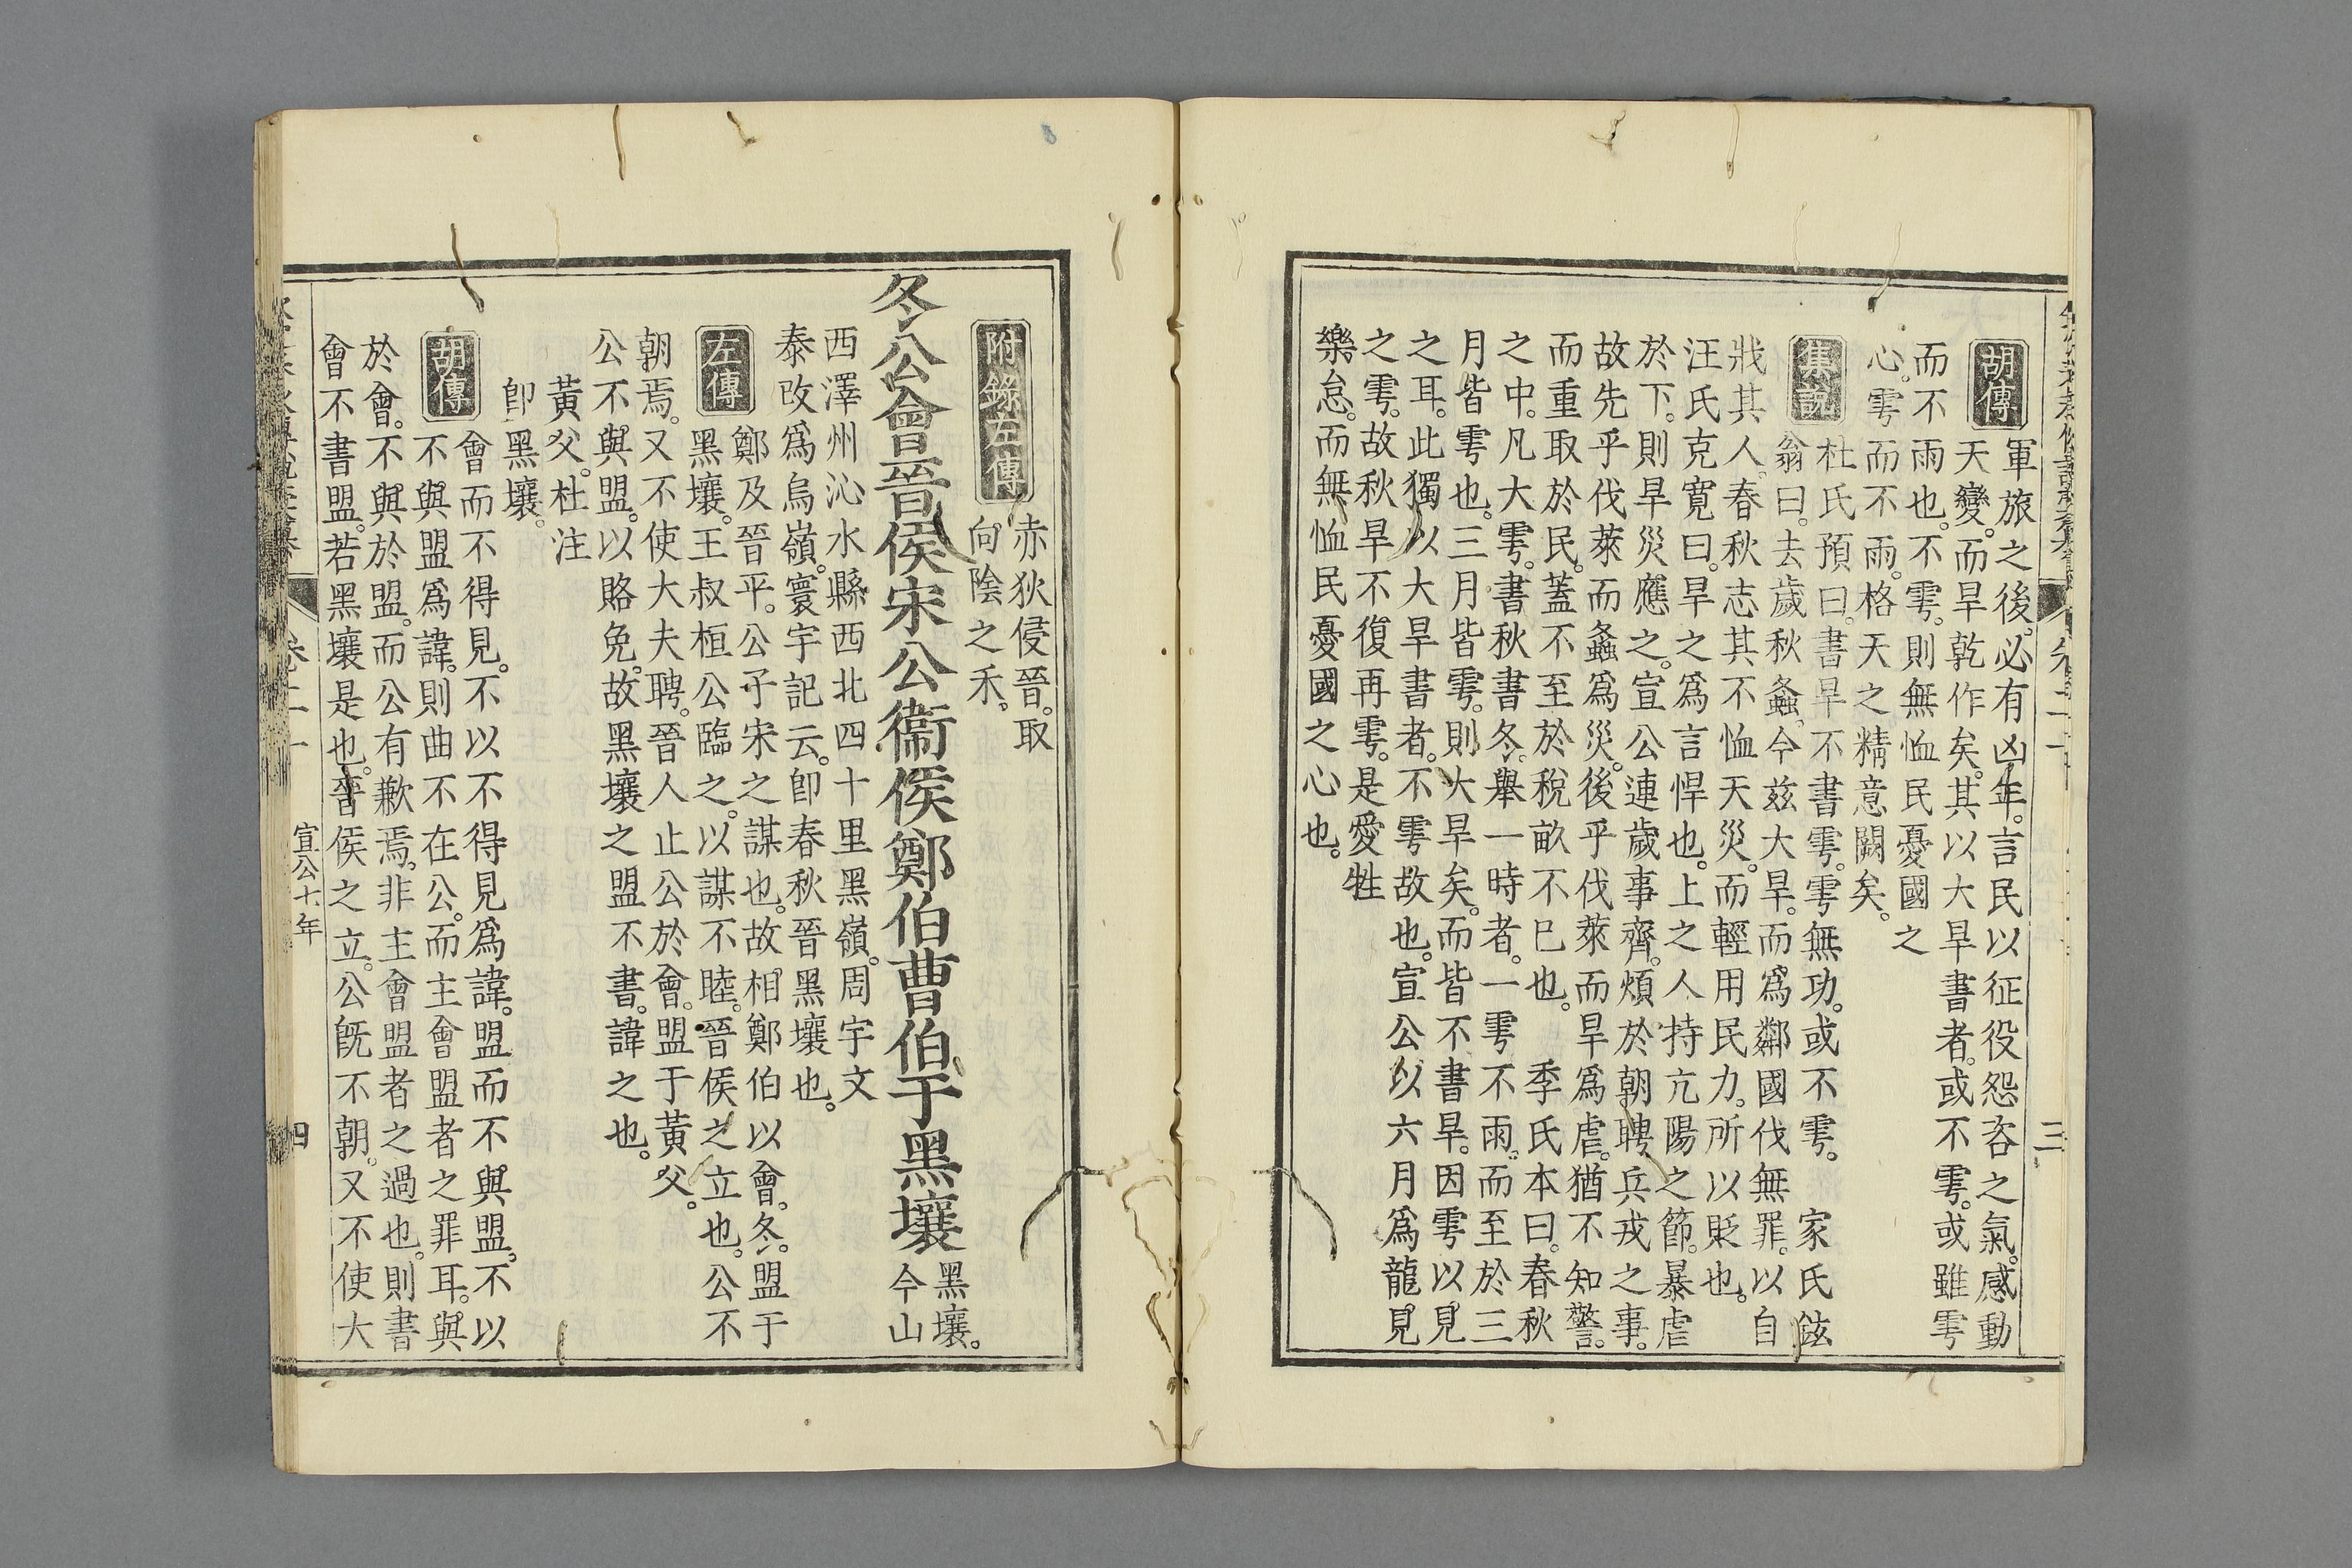 三
胡傳 軍旅之後。必有凶年。言民以征役怨咨之氣。感動
天變。而旱乾作矣。其以大旱書者。或不雩。或雖雩
而不雨也。不雩。則無恤民憂國之
心。雩而不雨。格天之精意闕矣。
集說 杜氏預曰。書旱不書雩。雩無功。或不雩。 家氏鉉
翁曰。去歲秋螽。今茲大旱。而爲鄰國伐無罪。以自
戕其人。春秋志其不恤天災。而輕用民力。所以貶也。
汪氏克寬曰。旱之爲言悍也。上之人持亢陽之節。暴虐
於下。則旱災應之。宣公連歲事齊。煩於朝聘兵戎之事。
故先乎伐萊而螽爲災。後乎伐萊而旱爲虐。猶不知警。
而重取於民。蓋不至於稅畝不已也。 季氏本曰。春秋
之中。凡大雩。書秋書冬。舉一時者。一雩不雨。而至於三
月皆雩也。三月皆雩。則大旱矣。而皆不書旱。因雩以見
之耳。此獨以大旱書者。不雩故也。宣公以六月爲龍見
之雩。故秋旱不復再雩。是愛牲
樂怠。而無恤民憂國之心也。
附錄左傳 赤狄侵晉。取
向陰之禾。
冬公會晉侯宋公衞侯鄭伯曹伯于黑壤 黑壤。
今山
西澤州沁水縣西北四十里黑嶺。周宇文
泰改爲烏嶺。寰宇記云。卽春秋晉黑壤也。
左傳 鄭及晉平。公子宋之謀也。故相鄭伯以會。冬。盟于
黑壤。王叔桓公臨之。以謀不睦。晉侯之立也。公不
朝焉。又不使大夫聘。晉人止公於會。盟于黃父。
公不與盟。以賂免。故黑壤之盟不書。諱之也。
黃父。杜注
卽黑壤。
胡傳 會而不得見。不以不得見爲諱。盟而不與盟。不以
不與盟爲諱。則曲不在公。而主會盟者之罪耳。與
於會。不與於盟。而公有歉焉。非主會盟者之過也。則書
會不書盟。若黑壤是也。晉侯之立。公旣不朝。又不使大
卷二十一 宣公七年 四